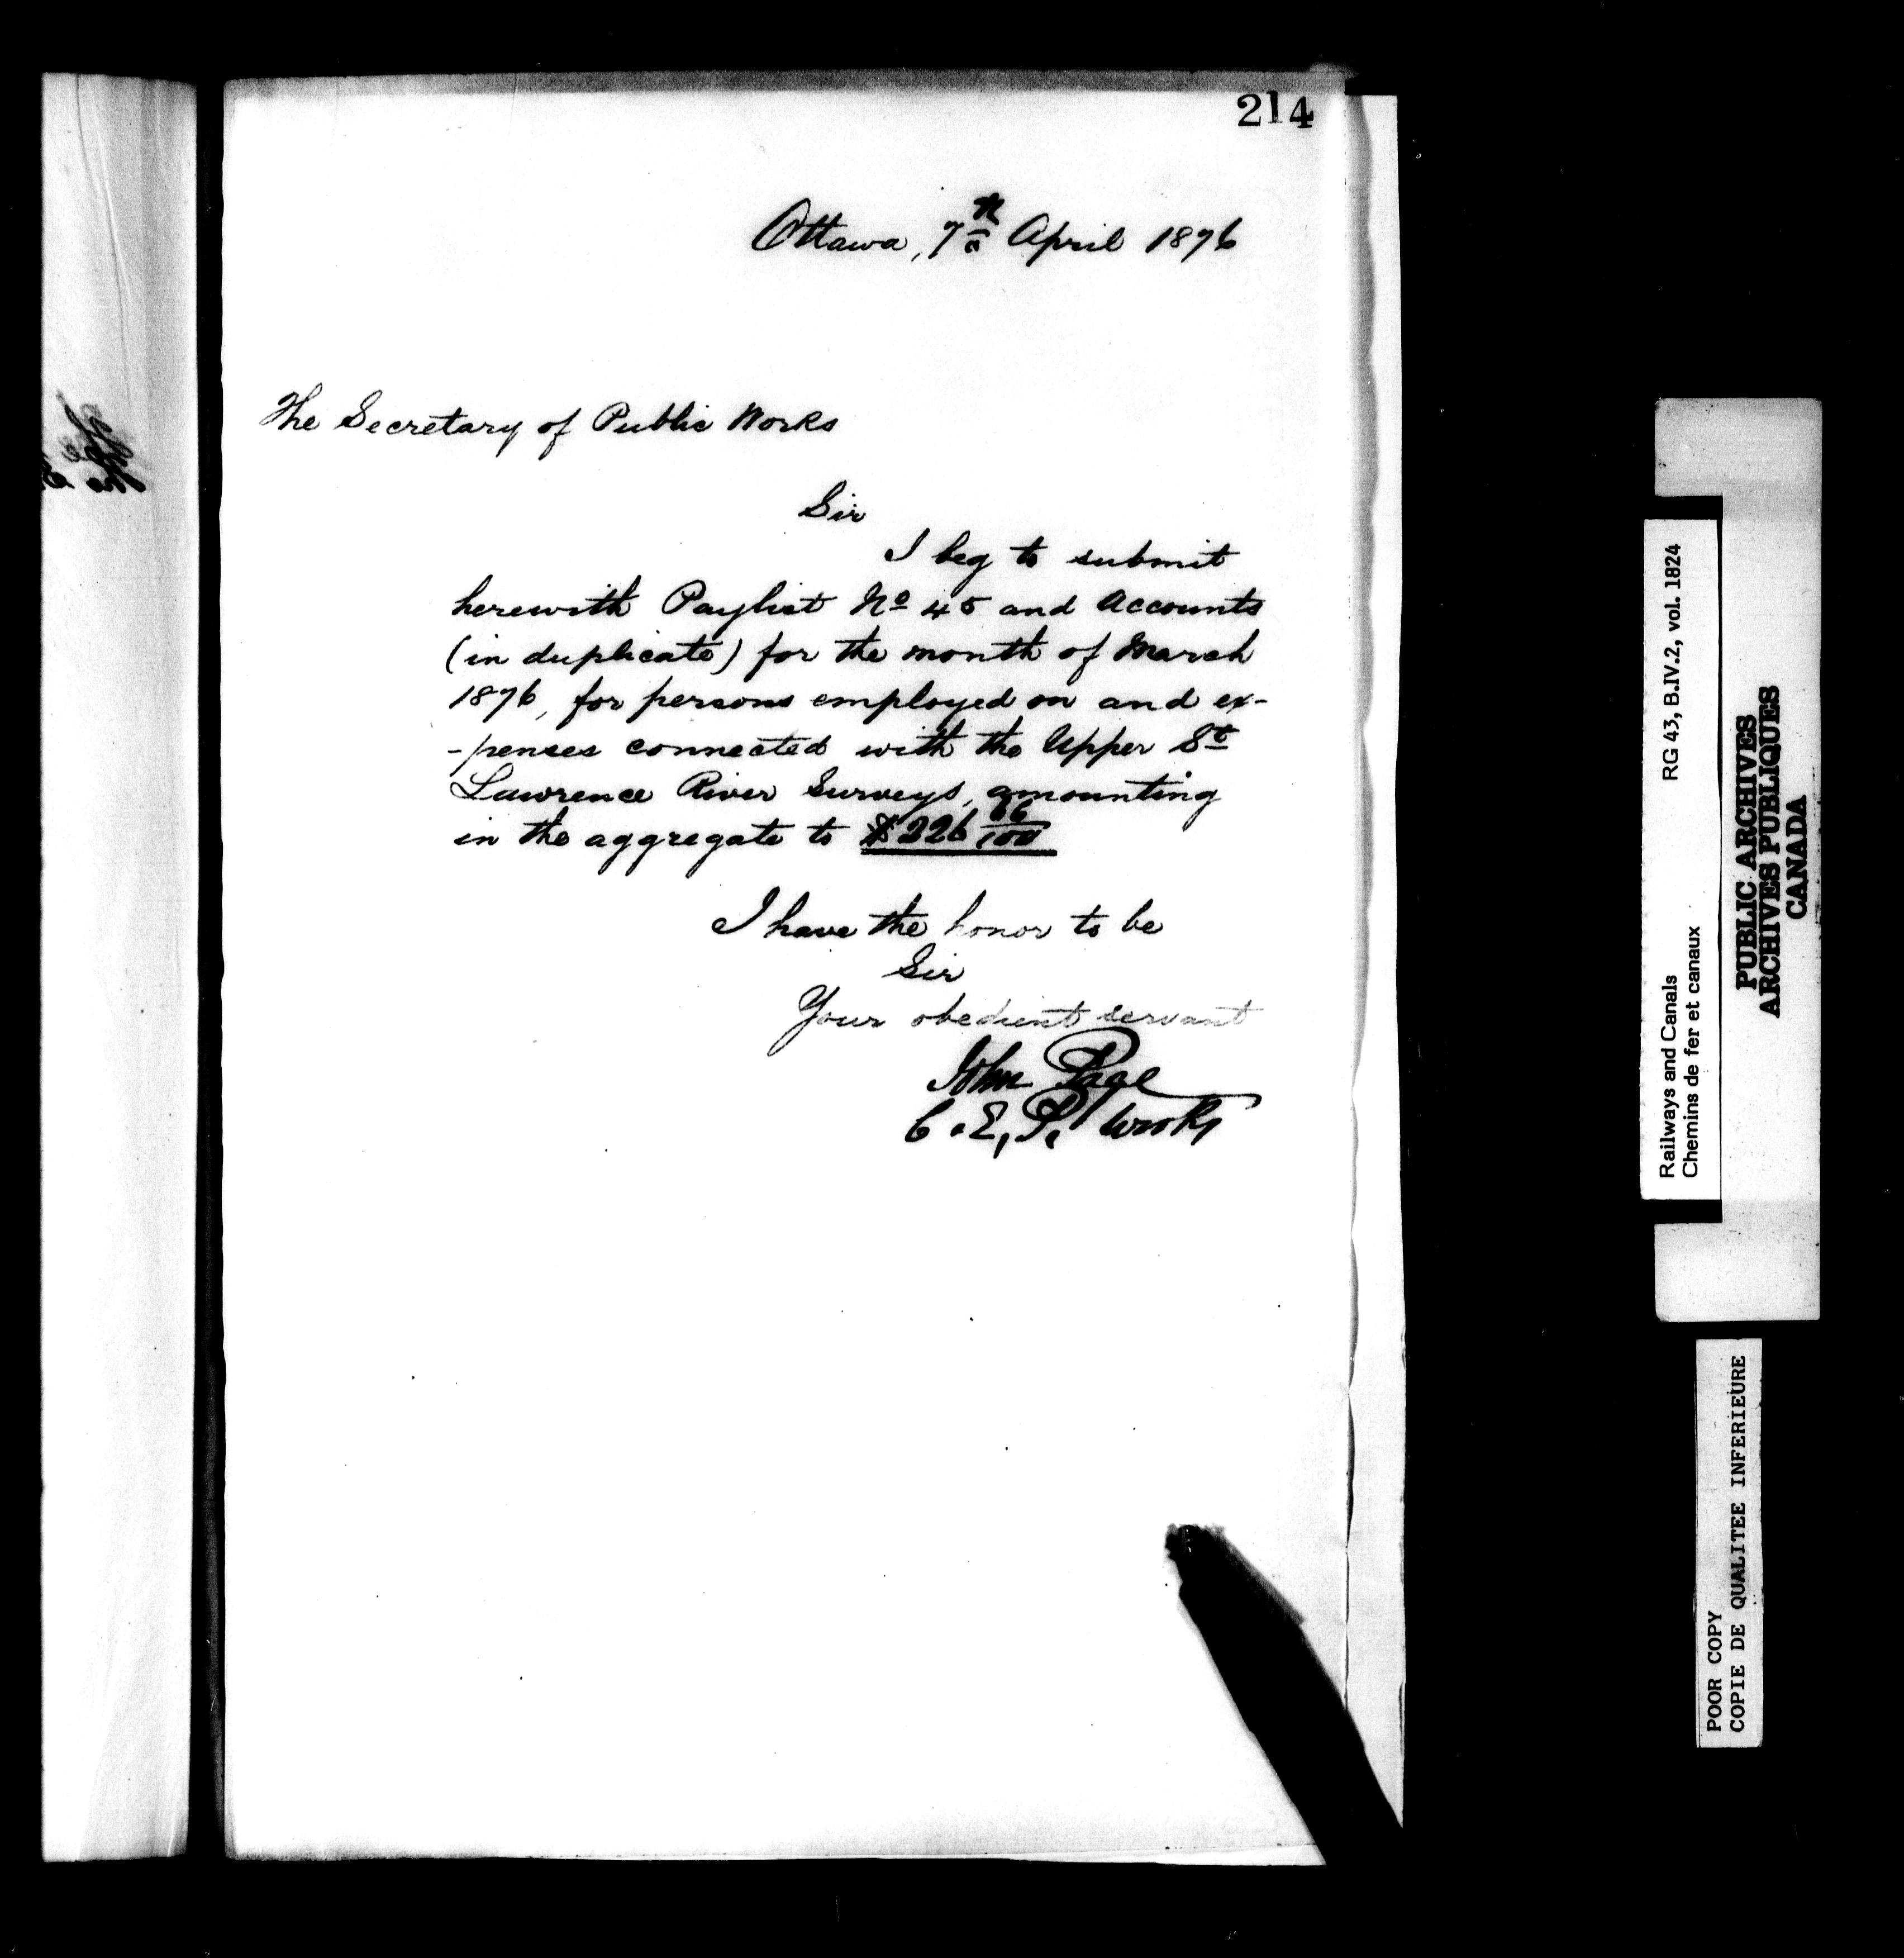 214
Ottawa, 7th April 1876
The Secretary of Public Works
Sir
I beg to submit
herewith Paylist No 45 and Accounts
(in duplicate) for the month of March
1876, for persons employed on and ex-
-penses connected with the Upper St
Lawrence River Surveys, amounting
in the aggregate to $226 66/100
I have the honor to be
Sir
Your obedient servant
John Page
C.E, P. Works
RG 43, B.IV.2, vol. 1824
Railways and Canals
Chemins de fer et canaux
PUBLIC ARCHIVES
ARCHIVES PUBLIQUES
CANADA
POOR COPY
COPIE DE QUALITEE INFERIEURE